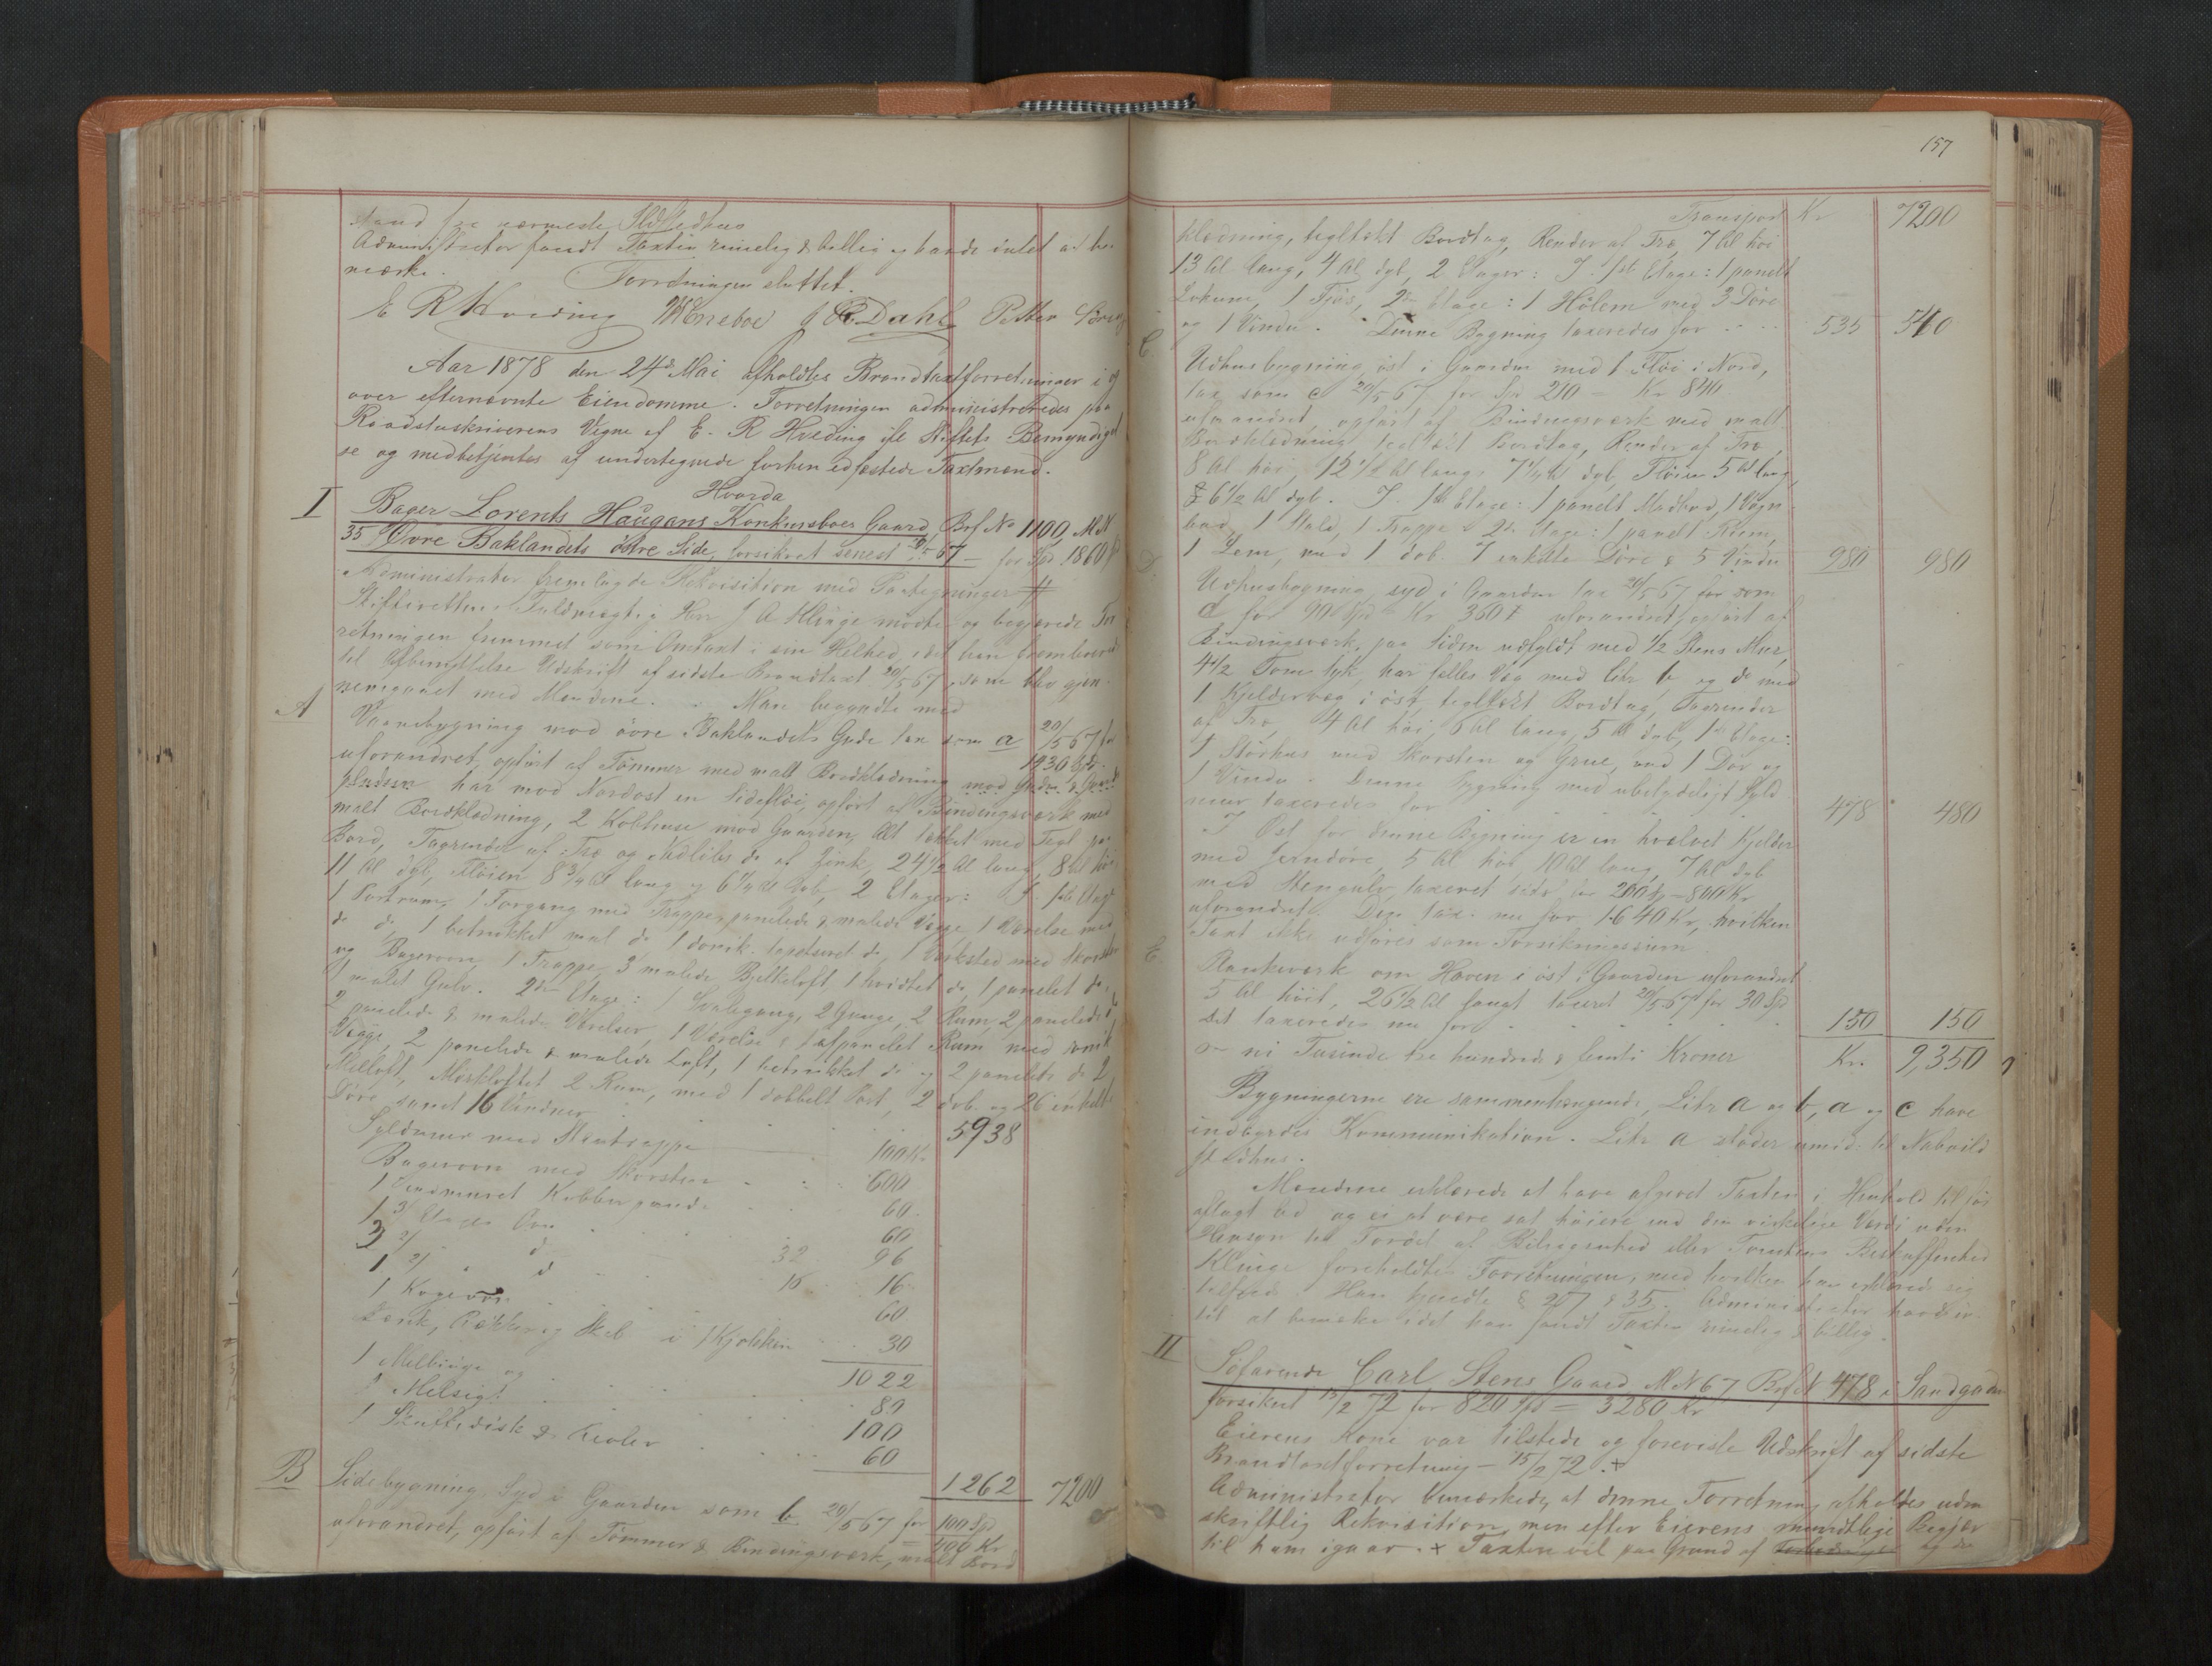 Stand fra nærmeste Ildstedhus
Administrator fandt Taxten rimelig & billig og havde intet at be-
mærke. Forretningen sluttet.
E R Hveding Petter
Aar 1878 den 24de Mai afholdtes Brandtaxtforretninger i og
over efternævnte Eiendomme. Forretningen administreredes paa
Raadstuskriverens Vegne af E. R Hveding ifl Stiftets Bemyndigel
se og medbetjentes af undertegnede forhen edfæstede Taxtmænd.
Hvorda
I Bager Lorents Haugans Konkursboes Gaard, Brf No 1100, M.N.
35 Øvre Baklandets østre Side, forsikret senest 20/5 67 for Spd 1860
Administrator fremlagde Rekvisition med Paategninger #
Skifterettens Fuldmægtig Herr J A Klinge mødte og begjærede For
retningen fremmet som Omtaxt i sin Helhed, idet han frembevred
til Afbenyttelse Udskrift af sidste Brandtaxt 20/5 67, som blev gjen-
nemgaaet med Mændene. Man begyndte med
A Vaanebygning mod øvre Baklandets Gade tax som a 20/5 67 for
uforandret, opført af Tømmer med malt Bordklædning mod Gaden & Gaards 1430 Spd
pladsen har mod Nordost en Sidefløi, opført af Bindingsværk med
malt Bordklædning, 2 Kobhuse mod Gaarden, Alt tækket med Tegl paa
Bord, Tagrender af Træ og Nedløbs do af Zink, 24 1/2 Al lang, 8 Al høi
11 Al dyb, Fløien 8 3/4 Al lang og 6 1/4 Al dyb, 2 Etager: I 1ste Etage
1 Portrum, 1 Forgang med Trappe, panelede & malede Vægge, 1 Værelse med
do do, 1 betrukket mal do 1 do tapetseret do, 1 Værksted med Skorsten
og Bagerovn, 1 Trappe, 3 malede Bjelkeloft, 1 hvidtet do, 1 panelet do,
1 malet Gulv. 2den Etage: 1 Svalegang, 2 Gange, 2 Rum, 2 panelede do
2 panelede & malede Værelser, 1 Værelse & 1 afpanelet Rum med
Vægge, 2 panelede & malede Loft, 1 betrukket do og 2 panelede do 2
Melloft, Mørkloftet 2 Rum, med 1 dobbelt Port, 2 dob. og 26 enkelte
Døre samt 16 Vinduer 5938
Syldmur med Stentrappe 100 Kr
Bagerovn med Skorsten 600
1 indmuret Kobberpande 60
1 3/ Etages Ovn 60
3 2/ d 32 96
1 2/ d 16 16
1 Kogeovn 60
Bænk, Rækker og Skab i 1 Kjøkken 30
1022
1 Melbinge og
1 Melsigt 80
1 Skuffedisk & Reoler 100
60
1262 7200
B Sidebygning Syd i Gaarden som b 20/5 67 for 100 Spd
uforandret, opført af Tømmer & Bindingsværk, malt Bord = 400 Kr
157
Transport Kr 7200
klædning, tegltækt Bordtag, Render af Træ, 7 Al høi
13 Al lang, 4 Al dyb, 2 Etager: I 1ste Etage: 1 panelt
Lokum, 1 Fjøs, 2den Etage: 1 Hølem med 3 Døre
og 1 Vindu. Denne Bygning taxeredes for 535 540
C. Udhusbygning øst i Gaarden med 1 Fløi i Nord,
tax som c 20/5 67 for Spd 210 = Kr 840
uforandret, opført af Bindingsværk med malt
Bordklædning, tegltækt Bordtag, Render af Træ,
8 Al høi, 15 1/2 Al lang, 7 1/4 Al dyb, Fløien 5 Al lang,
6 1/2 Al dyb. I 1ste Etage: 1 panelt Madbod, 1 Vogn
bod, 1 Stald, 1 Trappe & 2den Etage: 1 panelt Rum,
1 Lem, med 1 dob. 7 enkelte Døre & 5 Vindu 980 980
D. Udhusbygning syd i Gaarden tax 20/5 67 før som
d for 90 Spd Kr 360 uforandret, opført af
Bindingsværk, paa Siden udfyldt med 1/2 Stens Mur,
4 1/2 Tom tyk, har fælles Væg med Litr b og do med
1 Kjeldervæg i øst, tegltækt Bordtag, Tagrender
af Træ, 4 Al høi, 6 Al lang, 5 Al dyb, 1 Etage:
1 Størhus med Skorsten og Grue, med 1 Dør og
1 Vindu. Denne Bygning med ubetydeligt Syld
mur taxeredes for 478 480
I Øst for denne Bygning er en hvælvet Kjelder
med Jerndøre, 5 Al høi, 10 Al lang, 7 Al dyb
med Stengulv, taxeret sidst for 200 Spd = 800 Kr
uforandret. Den tax. nu for 1640 Kr, hvilken
Taxt ikke udføres som Forsikringssum.
E. Plankeværk om Haven i øst i Gaarden uforandret
5 Al høit, 26 1/2 Al langt taxeret 20/5 67 for 30 Spd
Det taxeredes nu for 150 150
ni Tusinde tre hundrede & femti Kroner Kr. 9,350
Bygningerne ere sammenhængende, Litr a og b, a og c have
indbyrdes Kommunikation. Litr a støder umid. til Naboild
stedhus.
Mændene erklærede at have afgivet Taxten i Henhold til før
aflagt Ed og ei at være sat høiere end den virkelige Værdi uden
Hensyn til Fordel af Beliggenhed eller Tomtens Beskaffenhed
Klinge foreholdtes Forretningen, med hvilken han erklærede sig
tilfreds. Han kjendte § 27 & 35. Administrator havde in-
tet at bemærke idet han fandt Taxten rimelig & billig.
II Søfarende Carl Stens Gaard M N 67 Brf N 478 i Sandgaden
forsikret 15/2 72 for 820 Spd = 3280 Kr
Eierens Kone var tilstede og foreviste Udskrift af sidste
Brandtaxtforretning - 15/2 72. x
Administrator bemærkede, at denne Forretning afholdes uden
skriftlig Rekvisition, men efter Eierens mundtlige Begjær
til ham igaar. x Taxten vil paa Grund af